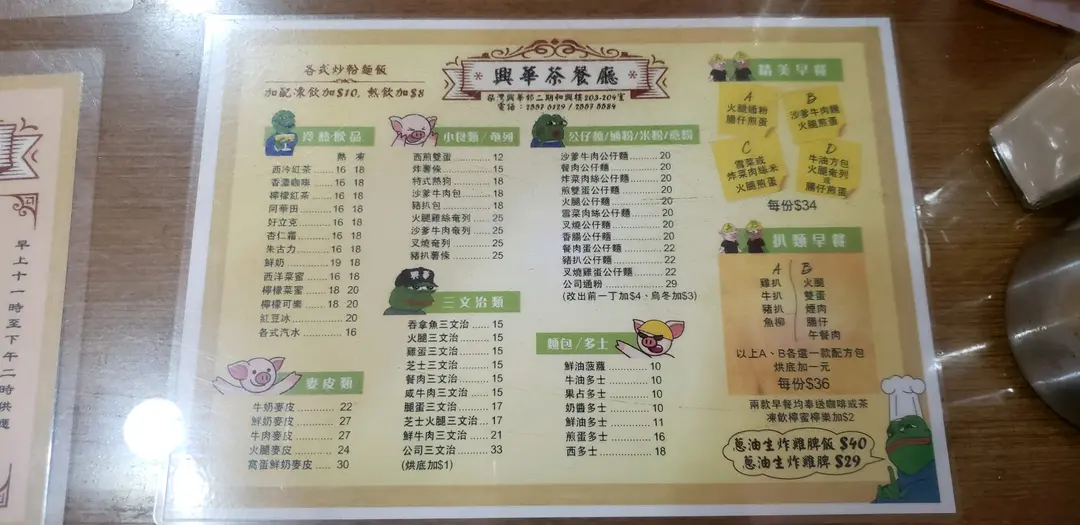 各式炒粉麵飯
加配凍飲加$10, 熱飲加$8
興華茶餐廳
柴灣興華邨二期和興樓203-204室
電話：2557 6129 / 2557 5584
冷熱飲品
熱 凍
西冷紅茶 16 18
香濃咖啡 16 18
檸檬紅茶 16 18
阿華田 16 18
好立克 16 18
杏仁霜 16 18
朱古力 16 18
鮮奶 19 18
西洋菜蜜 16 18
檸檬菜蜜 18 20
檸檬可樂 18 20
紅豆冰 20
各式汽水 16
麥皮類
牛奶麥皮 22
鮮奶麥皮 27
牛肉麥皮 27
火腿麥皮 24
窩蛋鮮奶麥皮 30
小食類/奄列
西煎雙蛋 12
炸薯條 15
特式熱狗 18
沙爹牛肉包 18
豬扒包 18
火腿雞絲奄列 25
沙爹牛肉奄列 25
叉燒奄列 25
豬扒薯條 25
三文治類
吞拿魚三文治 15
火腿三文治 15
雞蛋三文治 15
芝士三文治 15
餐肉三文治 15
咸牛肉三文治 15
腿蛋三文治 17
芝士火腿三文治 17
鮮牛肉三文治 21
公司三文治 33
(烘底加$1)
公仔麵/通粉/米粉/意粉
沙爹牛肉公仔麵 20
餐肉公仔麵 20
炸菜肉絲公仔麵 20
煎雙蛋公仔麵 20
火腿公仔麵 20
雪菜肉絲公仔麵 20
叉燒公仔麵 20
香腸公仔麵 20
餐肉蛋公仔麵 22
豬扒公仔麵 22
叉燒雞蛋公仔麵 22
公司通粉 29
(改出前一丁加$4、烏冬加$3)
麵包/多士
鮮油菠蘿 10
牛油多士 10
果占多士 10
奶醬多士 10
鮮油多士 11
煎蛋多士 16
西多士 18
精美早餐
A
火腿通粉
腸仔煎蛋
B
沙爹牛肉麵
火腿煎蛋
C
雪菜或
炸菜肉絲米
火腿煎蛋
D
牛油方包
火腿奄列
或
腸仔煎蛋
每份$34
扒類早餐
A B
雞扒 火腿
牛扒 雙蛋
豬扒 煙肉
魚柳 腸仔
午餐肉
以上A、B各選一款配方包
烘底加一元
每份$36
兩款早餐均奉送咖啡或茶
凍飲檸蜜檸樂加$2
蔥油生炸雞脾飯 $40
蔥油生炸雞脾 $29
早上十一時至下午二時供應